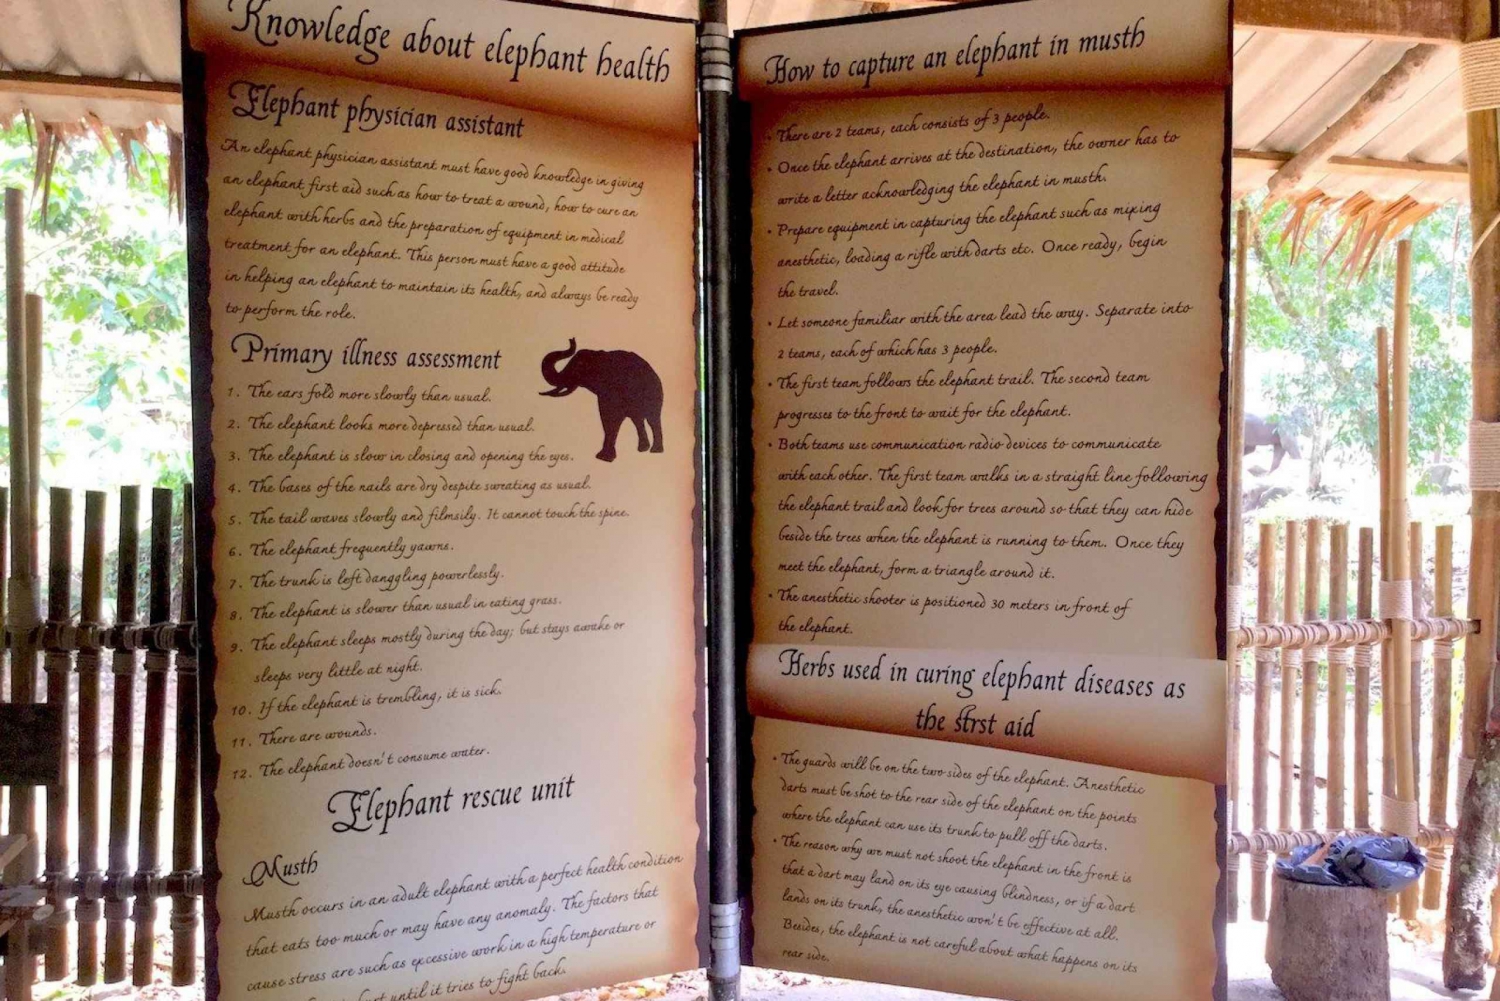 Knowledge about elephant health
Elephant physician assistant
An elephant physician assistant must have good knowledge in giving
an elephant first aid such as how to treat a wound, how to cure an
elephant with herbs and the preparation of equipment in medical
treatment for an elephant. This person must have a good attitude
in helping an elephant to maintain its health, and always be ready
to perform the role.
Primary illness assessment
1. The ears fold more slowly than usual.
2. The elephant looks more depressed than usual.
3. The elephant is slow in closing and opening the eyes.
4. The bases of the nails are dry despite sweating as usual.
5. The tail waves slowly and filmsily. It cannot touch the spine.
6. The elephant frequently yawns.
7. The trunk is left danggling powerlessly.
8. The elephant is slower than usual in eating grass.
9. The elephant sleeps mostly during the day; but stays awake or
sleeps very little at night.
10. If the elephant is trembling, it is sick.
11. There are wounds.
12. The elephant doesn't consume water.
Elephant rescue unit
Musth
Musth occurs in an adult elephant with a perfect health condition
that eats too much or may have any anomaly. The factors that
cause stress are such as excessive work in a high temperature or
until it tries to fight back.
How to capture an elephant in musth
• There are 2 teams, each consists of 3 people.
• Once the elephant arrives at the destination, the owner has to
write a letter acknowledging the elephant in musth.
• Prepare equipment in capturing the elephant such as mixing
anesthetic, loading a rifle with darts etc. Once ready, begin
the travel.
• Let someone familiar with the area lead the way. Separate into
2 teams, each of which has 3 people.
• The first team follows the elephant trail. The second team
progresses to the front to wait for the elephant.
• Both teams use communication radio devices to communicate
with each other. The first team walks in a straight line following
the elephant trail and look for trees around so that they can hide
beside the trees when the elephant is running to them. Once they
meet the elephant, form a triangle around it.
• The anesthetic shooter is positioned 30 meters in front of
the elephant.
Herbs used in curing elephant diseases as
the first aid
• The guards will be on the two sides of the elephant. Anesthetic
darts must be shot to the rear side of the elephant on the points
where the elephant can use its trunk to pull off the darts.
• The reason why we must not shoot the elephant in the front is
that a dart may land on its eye causing blindness, or if a dart
lands on its trunk, the anesthetic won't be effective at all.
Besides, the elephant is not careful about what happens on its
rear side.